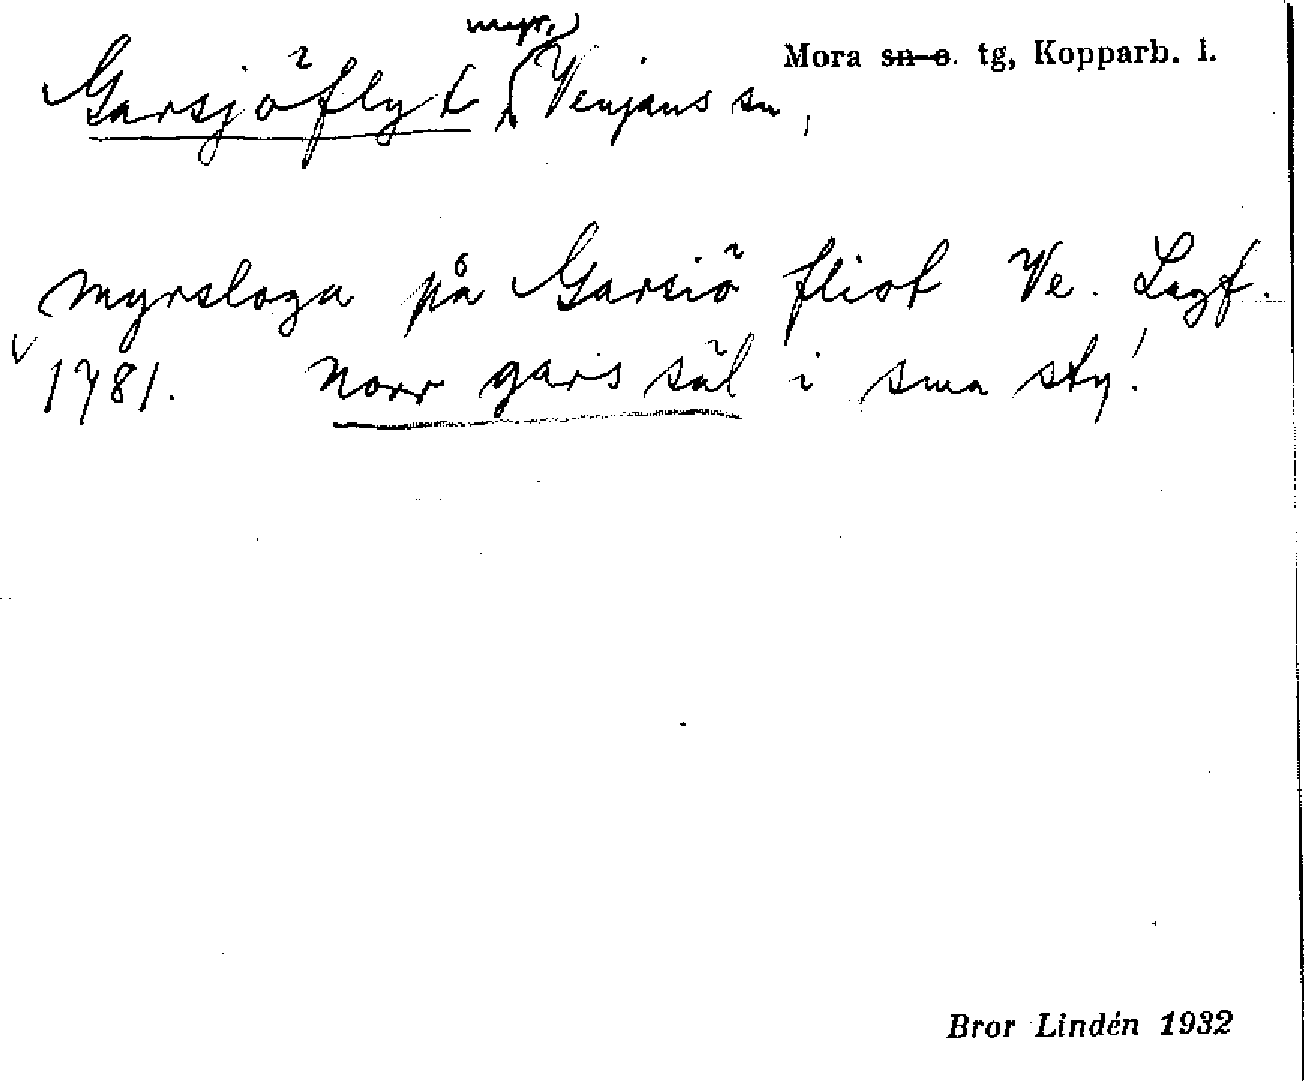 myr,
Garsjöflyt Venjans sn, Mora sn o. tg, Kopparb. l.
myrsloga på Garsiö fliot Ve. Lagf.
v 1781. Norr gars säl i sma sty!
Bror Lindén 1932